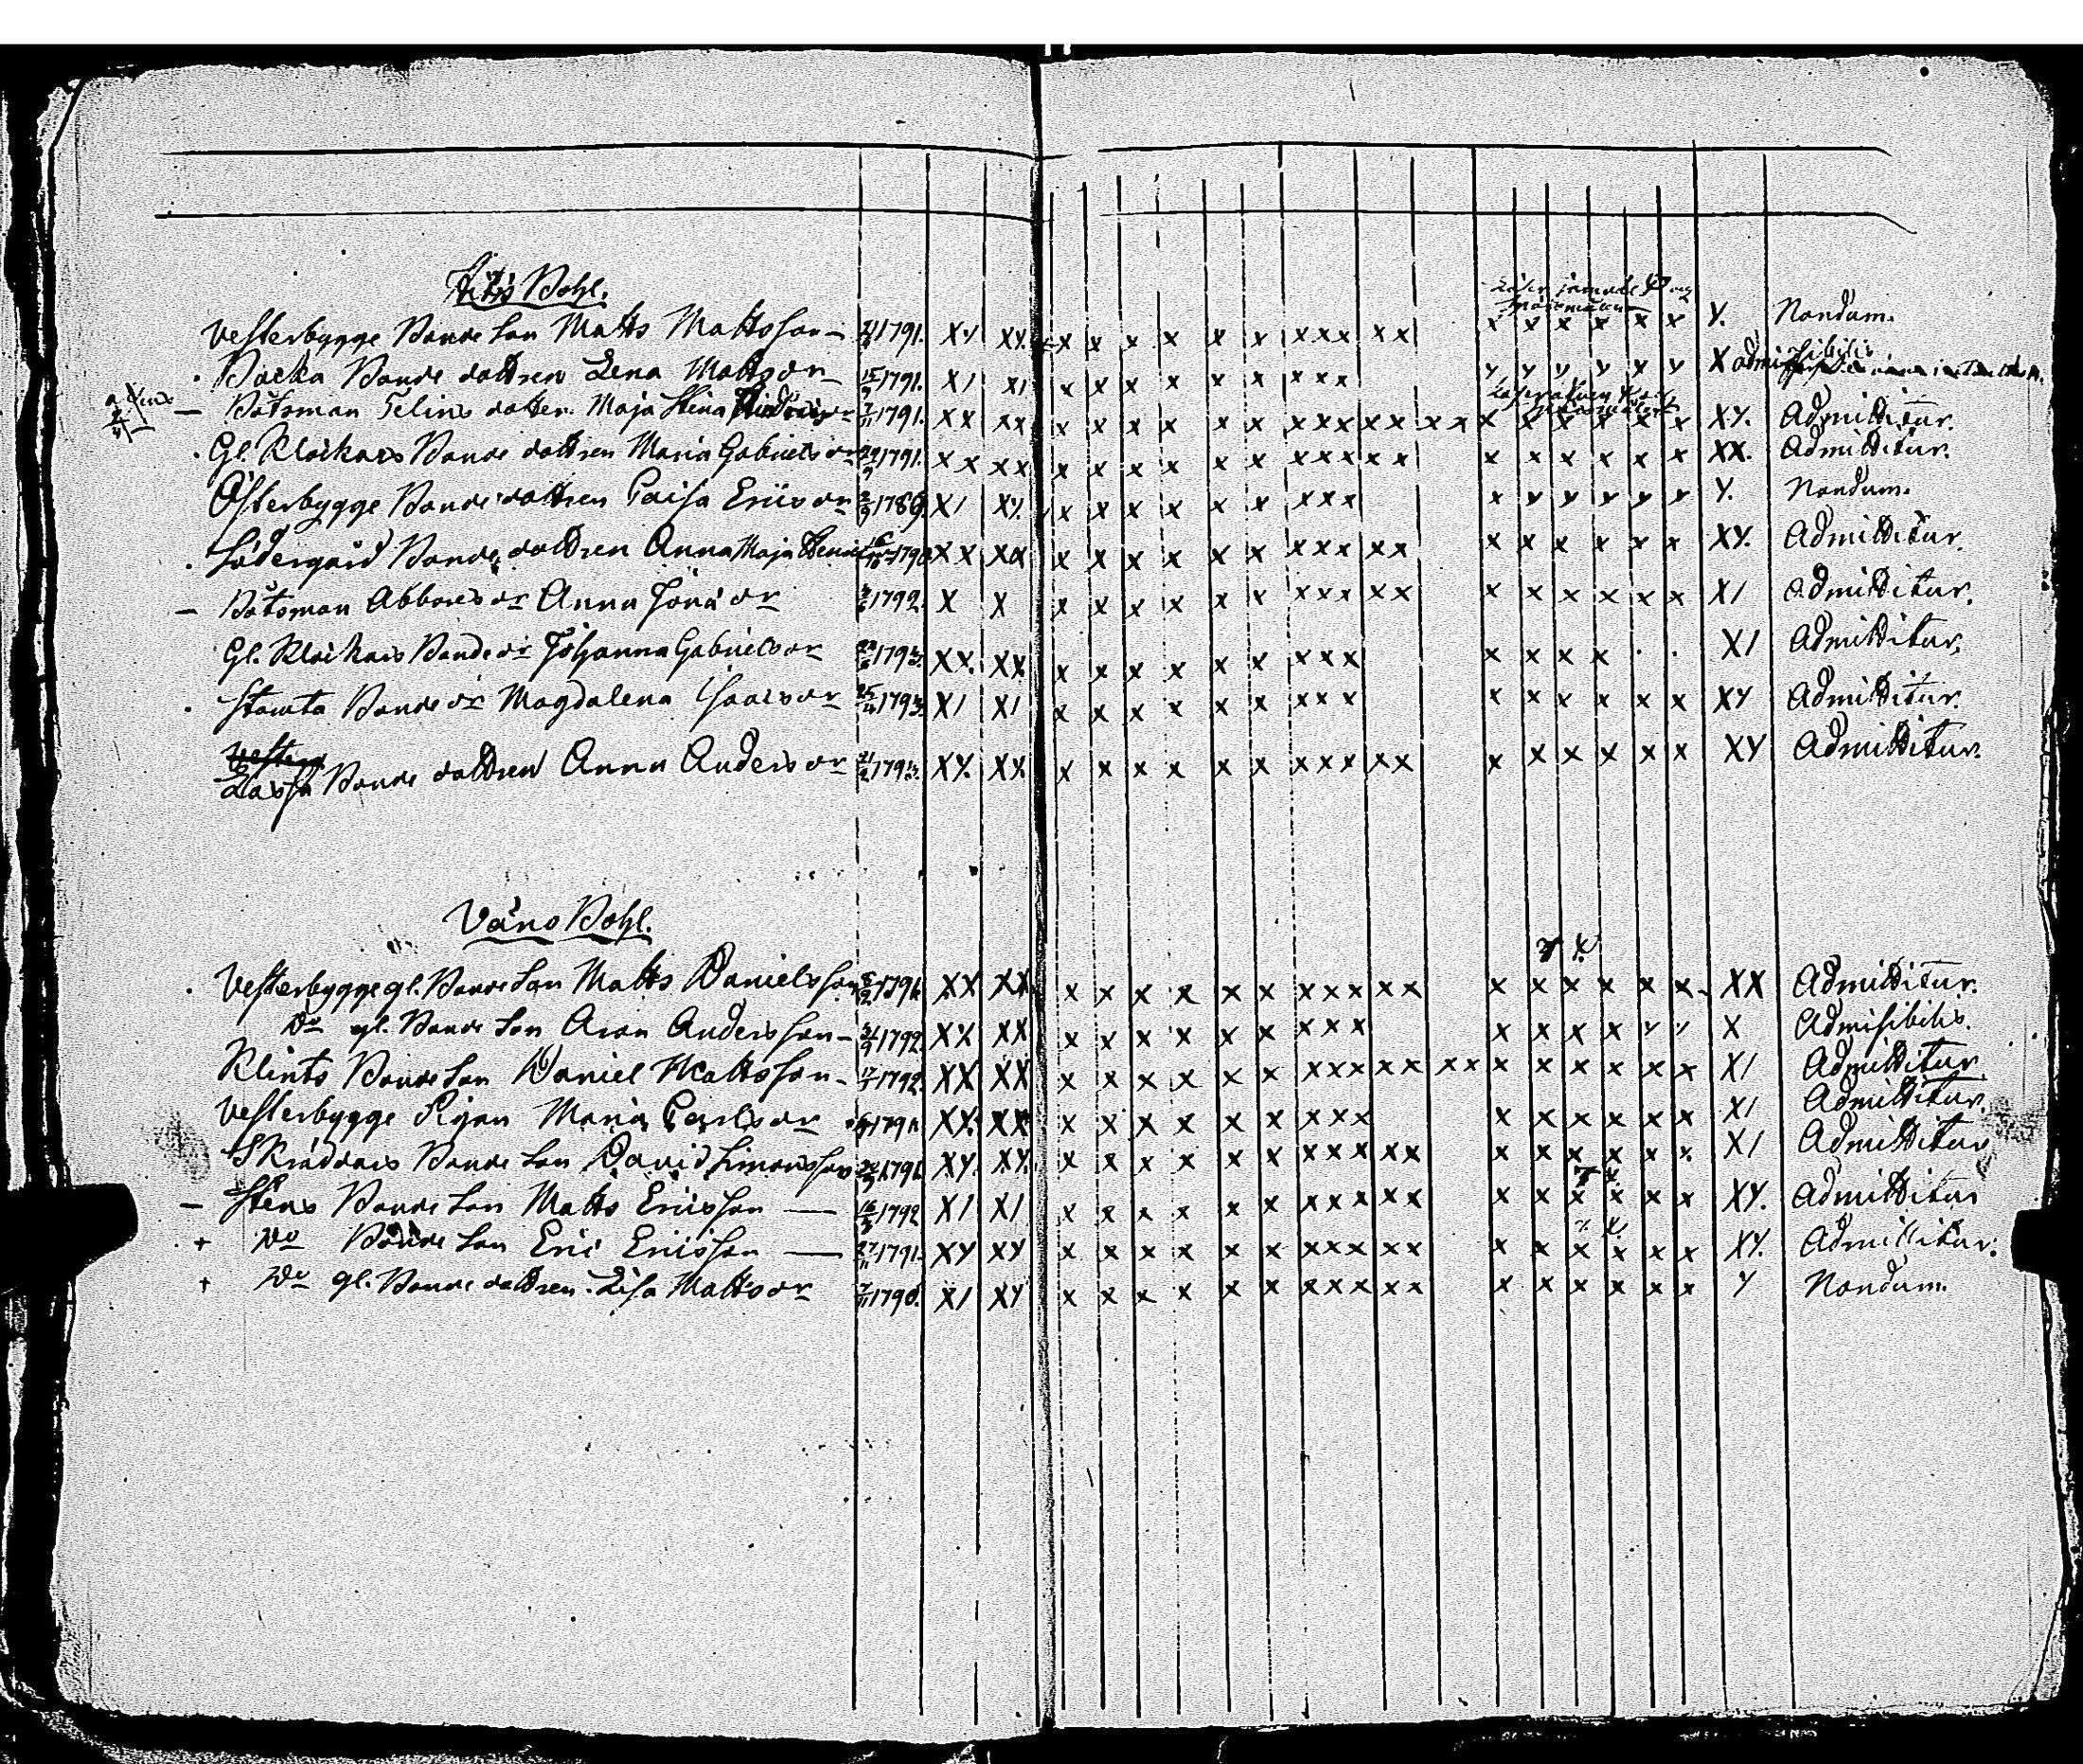 Bohl.
Vesterbygge Bonde Son Matts Mattsson 1791. XY XY. x x x x x x xxx xx x x x x x x Y. Nondum.
Backa Bonde dottren Lena Matts dr 15/9 1791. XI XI x x x x x x xxx y y y y y y X admissibilis
Båtsman Telins dotter Maja Stina 7/11 1791. XX XX x x x x x x xxx xx xx x x x x x x XY. Admittitur.
Gl. Klockars Bonde dottren Maria Gabriels dr 1791. XX XX x x x x x x xxx xx x x x x x x XX. Admittitur.
Österbygge Bonde dottren Caisa Erics dr 1789. XI XY. x x x x x x xxx x y y y y y Y. Nondum.
Södergård Bonde dottren Anna Maja 1790 XX XX x x x x x x xxx xx x x x x x x XY. Admittitur.
Båtsman Abbores dr Anna Jona dr 1792. X X x x x x x x xxx xx x x x x x x XI Admittitur.
Gl. Klockars Bonde dr Johanna Gabriels dr 1793. XX. XX x x x x x x xxx x x x x . . XI Admittitur.
Bonde dr Magdalena Isaacs dr 25/4 1793. XI XI x x x x x x xxx x x x x x x XY Admittitur.
Lassa Bonde dottren Anna Anders dr 21/2 1793. XY. XY. x x x x x x xxx xx x x x x x x XY Admittitur.
Väno Bohl.
Vesterbygge gl. Bonde Son Matts Danielsson 1791. XX XX x x x x x x xxx xx x x x x x x XX Admittitur.
Do gl. Bonde Son Aron Andersson 1792 XX XX x x x x x x xxx x x x x y y X Admissibilis.
Klints Bonde Son Daniel Mattsson 1792 XX XX x x x x x x xxx xx xx x x x x x x XI Admittitur
Vesterbygge Pigan Maria Carls dr 1791. XX. XX x x x x x x xxx x x x x x x XI Admittitur.
Skräddars Bonde Son David Simonsson 1791. XY. XY. x x x x x x xxx xx x x x x x x XI Admittitur
Stens Bonde Son Matts Ericsson 16/3 1792 XI XI x x x x x x xxx xx x x x x x x XY. Admittitur
Do Bonde Son Eric Ericsson 27/11 1791. XY XY x x x x x x xxx xx x x x x x x XY. Admittitur.
Do gl. Bonde dottren Lisa Matts dr 7/11 1790. XI XY x x x x x x xxx xx x x x x x x Y Nondum.